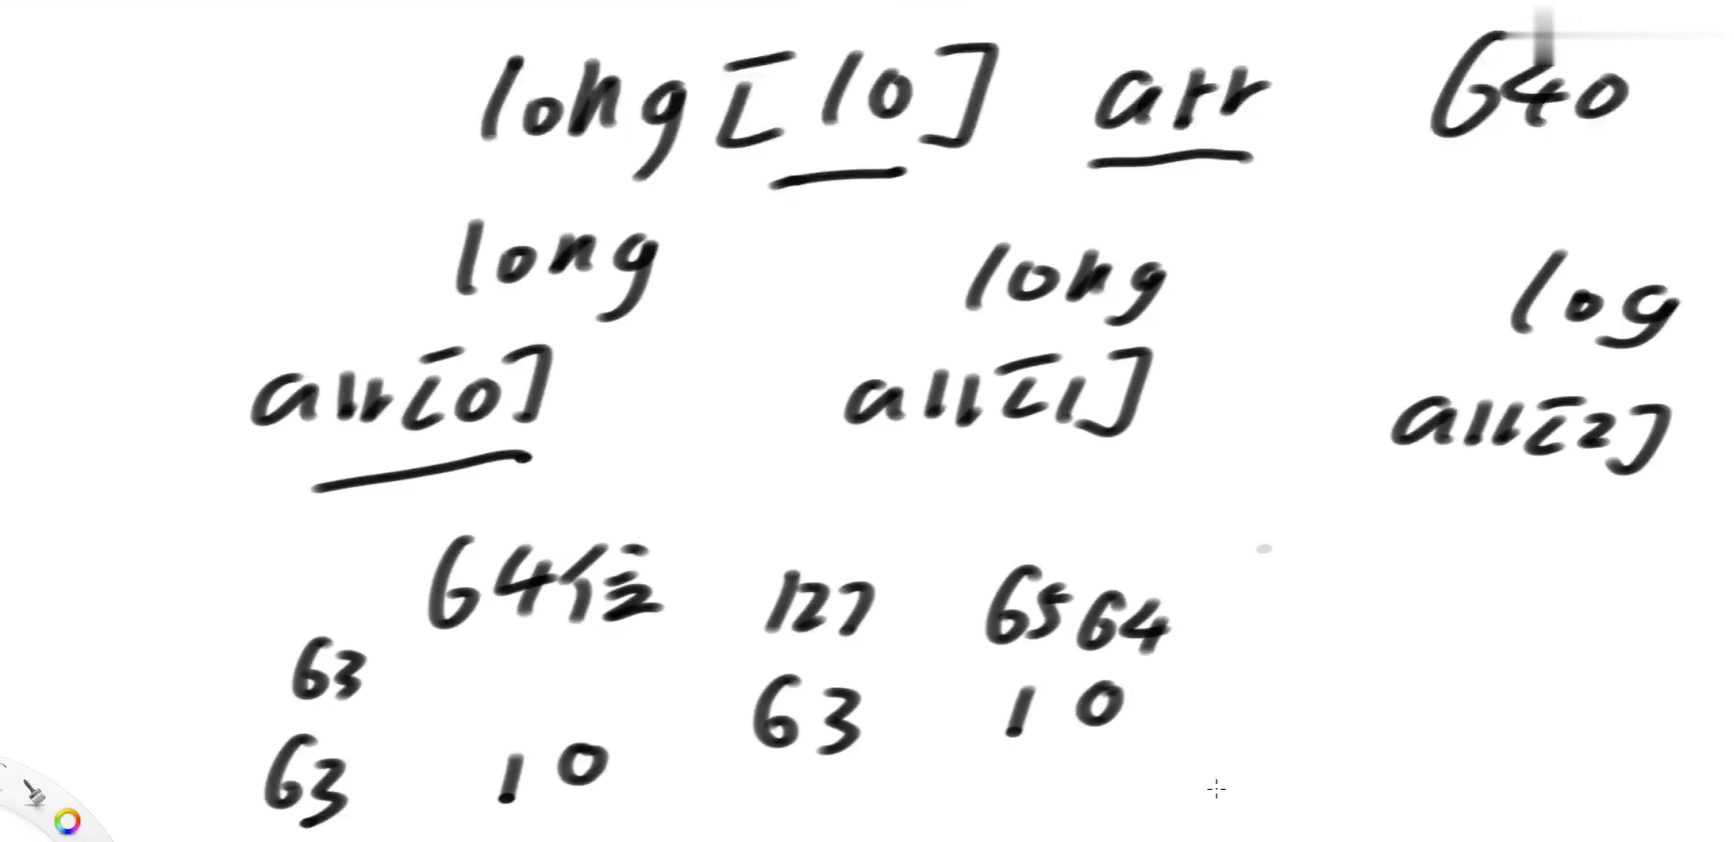 long[10] arr 640
long long log
arr[0] arr[1] arr[2]
64位 127 65 64
63
63 1 0
63 1 0